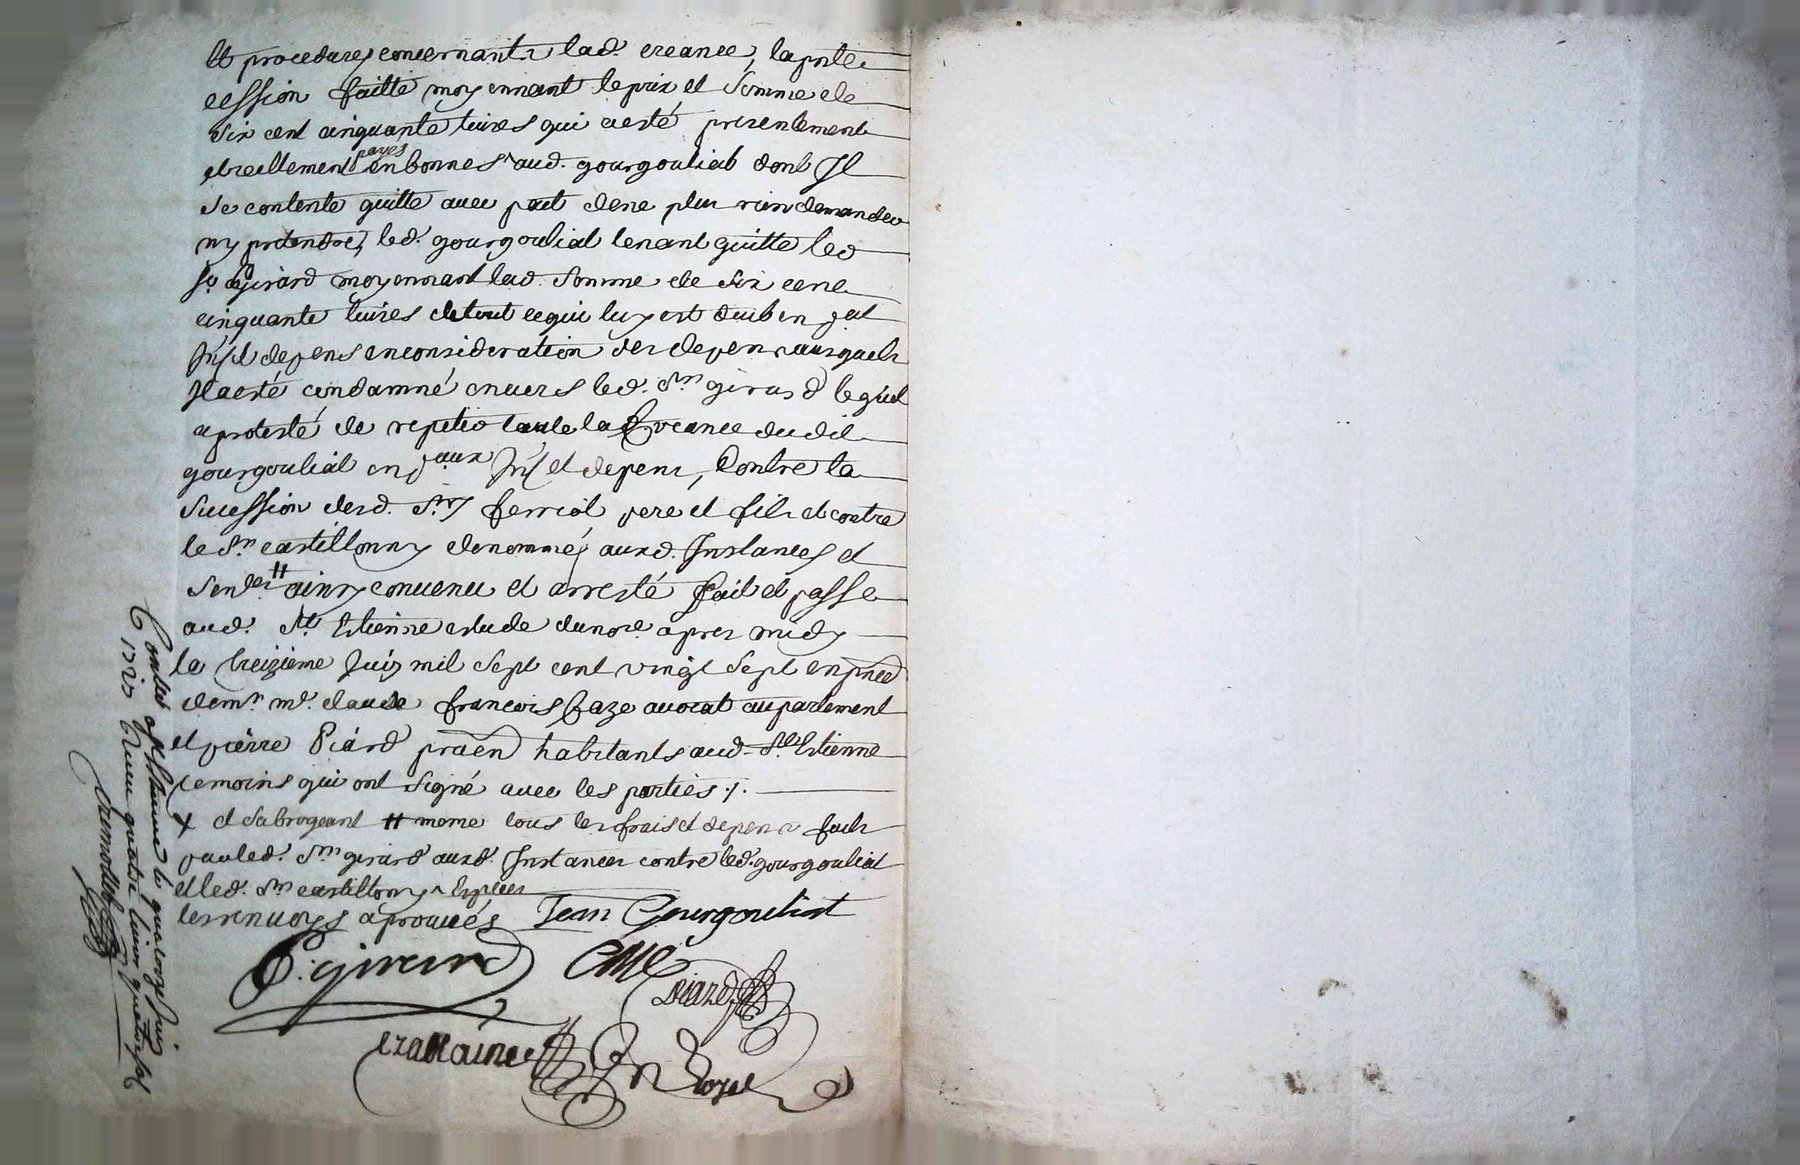 et procedures concernant lad. creance, la pnte
cession faitte moyennant le prix et somme de
six cent cinquante livres qui a esté presentement
et reellement payes en bonnes ^ aud. gourgouliat dont Il
se contente quitte avec pact de ne plus rien demander
ny pretendre, led. gourgouliat tenant quitte led
sr girard moyennant lad. somme de six cent
cinquante livres de tout ce qui luy est deub en pal
Inst et depens en consideration des depens ausquels
Il a esté condamné envers led. Srn girard lequel
a protesté de repeter la creance dudit
gourgouliat en paux Inst et depens, Contre la
sucession desd. Srs ferriol pere et fils et contre
le Sr castillonny denommés auxd. Instances et
Sendes # ainsy convenu et arresté fait et passé
aud. St Estienne estude du nore apres midy
le treizieme Juin mil sept cent vingt sept en pnce
de mr me claude francois faze avocat au parlement
et pierre Piard praen habitants aud. St Estienne
temoins qui ont signé avec les parties ./.
x et subrogeant # meme tous les frais et depens faits
par led. Srn girard auxd. Instances contre led. gourgouliat
et led. Srn castillony ^ Especes
les renvoys aprouvés Jean Gourgouliat
C. girard
piard
Controllé a St Estienne le quatorze Juin
1727 Receu quatre livres quatorze s